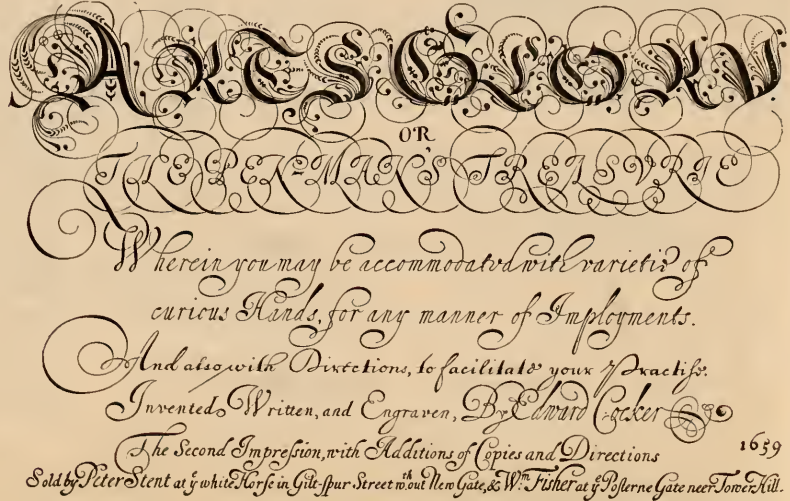 ARTS GLORY
OR
THE PEN-MAN'S TREASVRIE
Wherein you may be accommodated with varietie of
curious Hands, for any manner of Imployments.
And also with Directions, to facilitate your Practise.
Invented, Written, and Engraven, By Edward Cocker
The Second Impression, with Additions of Copies and Directions 1659
Sold by Peter Stent at yᵉ white Horse in Gilt-spur Street wᵗʰout New Gate, & Wᵐ Fisher at yᵉ Posterne Gate neer Tower Hill.